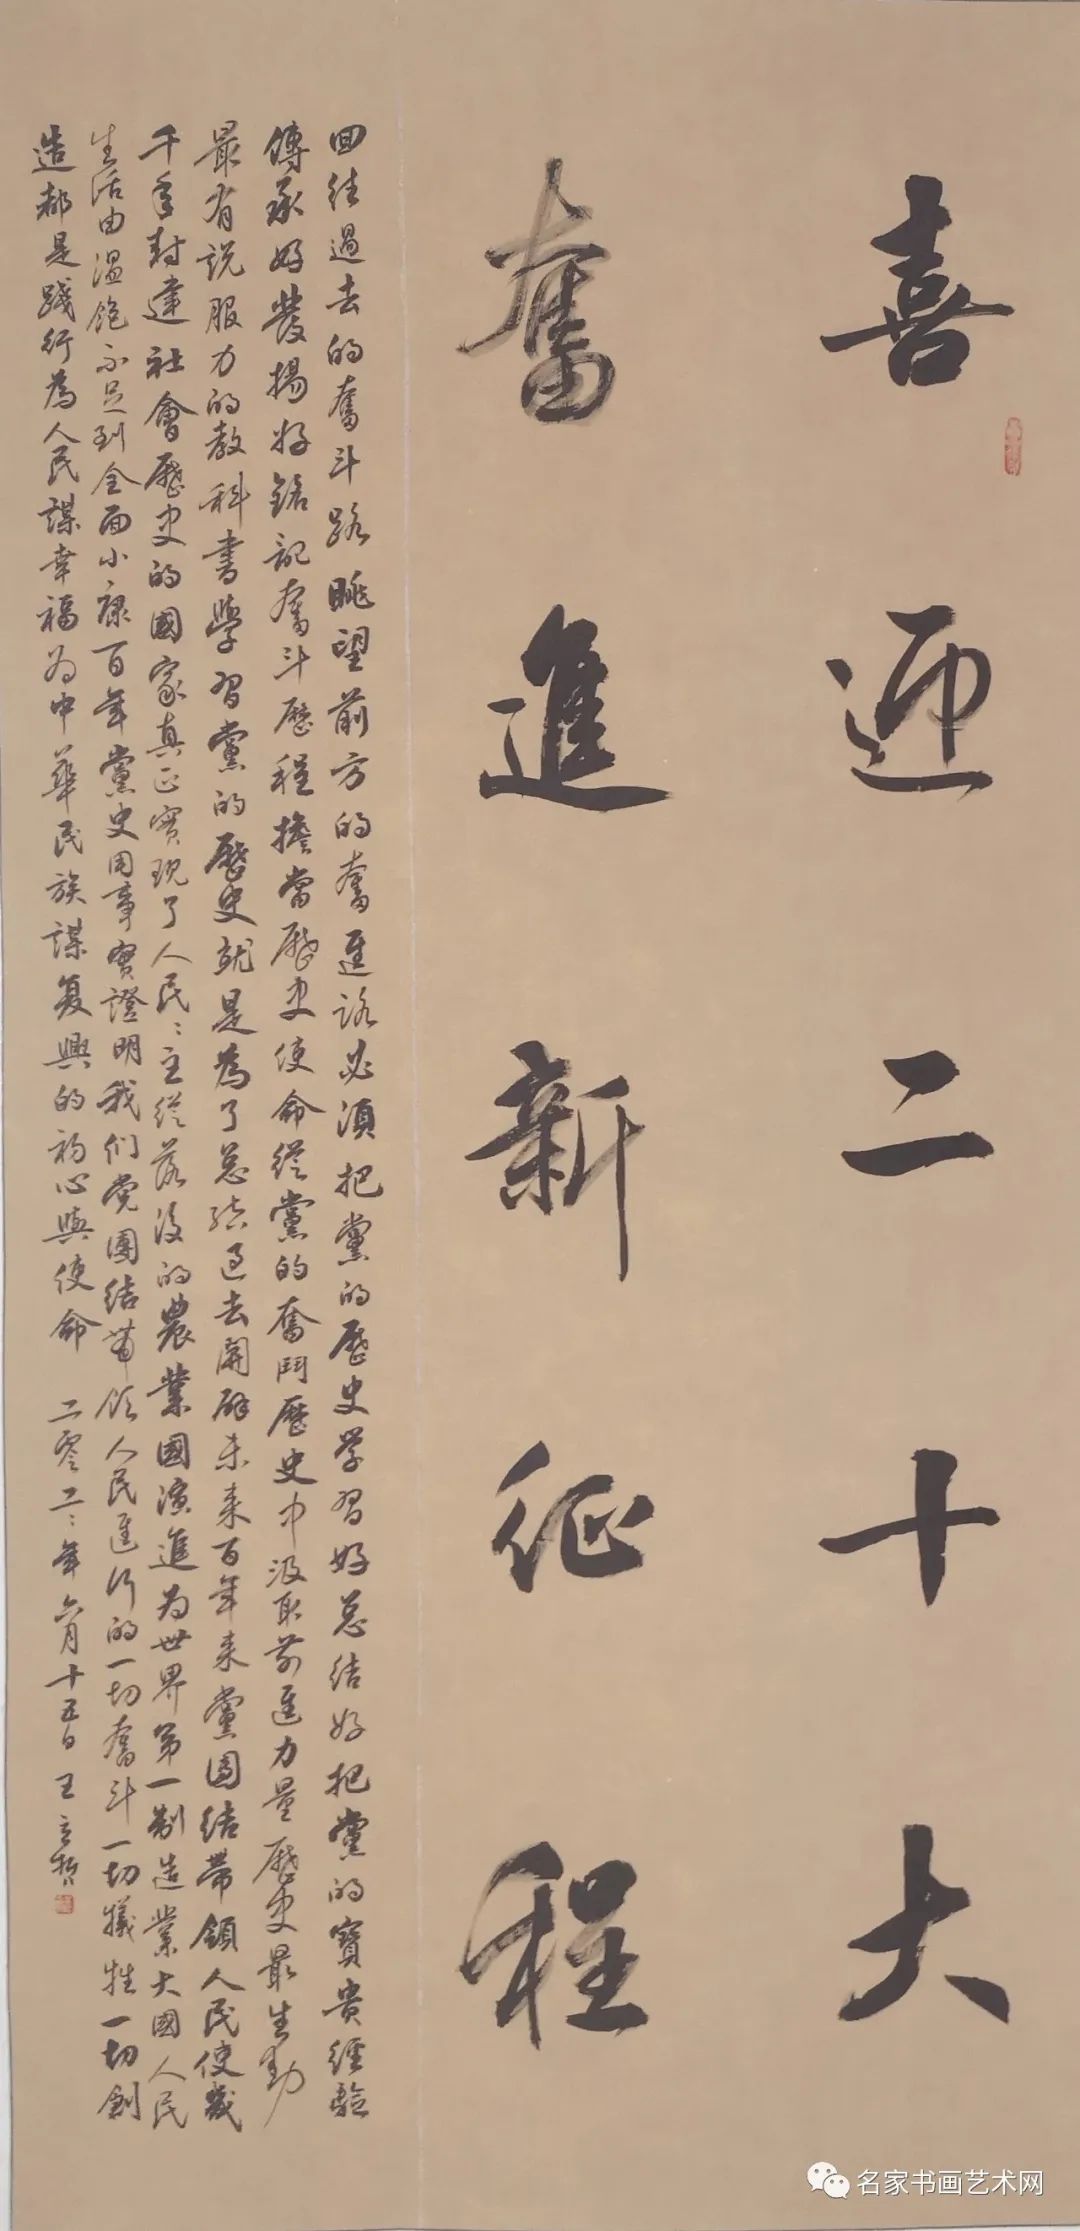 喜迎二十大
奮進新征程
回往過去的奮斗路眺望前方的奮進路必須把黨的歷史学習好总结好把黨的寶贵經驗
傳承好發揚好銘記奮斗歷程擔當歷史使命從黨的奮鬥歷史中汲取前進力量歷史最生動
最有説服力的教科書學習黨的歷史就是為了总結過去開辟未来百年来黨團结帶領人民使幾
千年封建社會歷史的國家真正實現了人民〻主從落後的農業國演進为世界第一制造業大國人民
生活由温飽不足到全面小康百年黨史用事實證明我们党團结带领人民進行的一切奮斗一切犧牲一切創
造都是踐行為人民謀幸福为中華民族謀复興的初心與使命 二零二〻年六月十五日 王立哲
名家书画艺术网